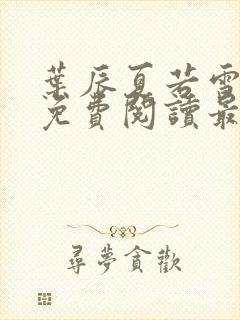 葉辰夏若雪
免費閱讀最
尋夢貪歡